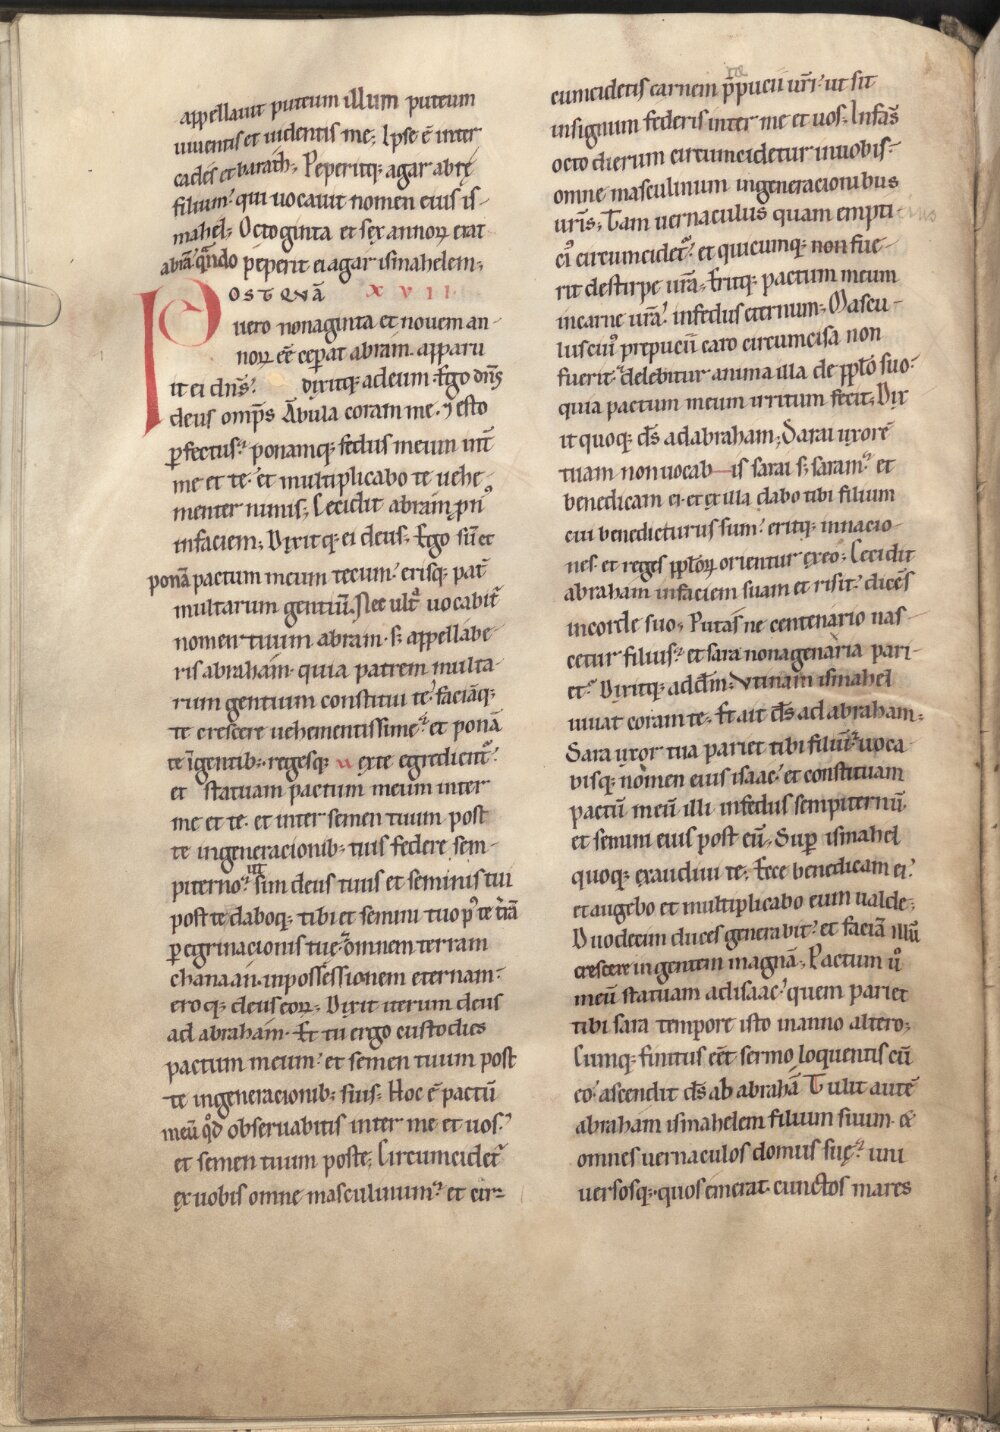 appellauit puteum illum puteum
uiuentis et uidentis me; Ipse ē inter
cades et barath; Peperitq; agar abrę
filium? qui uocauit nomen eius is-
mahel; Octoginta et sex annoꝝ erat
abrā q̄ndo peperit ei agar ismahelem;
POSTQVĀ XVII
uero nonaginta et nouem an-
noꝝ eē ceperat abram. apparu
it ei dn̄s? dixitq; ad eum. Ego dn̄s
deus omp̄s Ābula coram me. ⁊ esto
ꝑfectus? ponamq; fedus meum int̄
me et te. et multiplicabo te uehe-
menter nimis; Cecidit abram pn᾿
in faciem; Dixitq; ei deus; Ego sū et
ponā pactum meum tecum? erisq; pat̄
multarum gentiū. Nec ult᷑ uocabit᷑
nomen tuum abram. s; appellabe-
ris abraham. quia patrem multa-
rum gentium constitui te? faciāq;
te crescere uehementissime? et ponā
te ī gentib; regesq; ex te egredient᷑?
et statuam pactum meum inter
me et te. et inter semen tuum post
te in generacionib; tuis federe sem-
piterno? ut sim deus tuus et seminis tui
post te daboq; tibi et semini tuo p᾿ te t̄rā
ꝑegrinacionis tuę? omnem terram
chanaan. in possessionem eternam?
eroq; deus eoꝝ; Dixit iterum deus
ad abraham. Et tu ergo custodies
pactum meum? et semen tuum post
te in generacionib; suis; Hoc ē pactū
meū qd̄ obseruabitis inter me et uos?
et semen tuum post te; Circumcidet᷑
ex uobis omne masculinum? et cir=
cumcidetis carnem p̄pucii ur̄i? ut sit
in signum federis inter me et uos; Infās
octo dierum circumcidetur in uobis?
omne masculinum in generacionibus
ur̄is; Tam uernaculus quam empti
ci᾿ circumcidet᷑? et quicumq; non fue-
rit de stirpe ur̄a; Eritq; pactum meum
in carne ur̄a? in fedus eternum; Mascu-
lus cui᾿ prepucii caro circumcisa non
fuerit? delebitur anima illa de pplo᾿ suo?
quia pactum meum irritum fecit; Dix
it quoq; ds̄ ad abraham; Sarai uxorē
tuam non uocab—is sarai s; saram? et
benedicam ei. et ex illa dabo tibi filium
cui benedicturus sum? eritq; in nacio-
nes. et reges pploꝝ orientur ex eo; Cecidit
abraham in faciem suam et risit? dicēs
in corde suo; Putas ne centenario nas-
cetur filius? et sara nonagenaria pari-
et? Dixitq; ad dm̄; Vtinam ismahel
uiuat coram te; Et ait ds̄ ad abraham;
Sara uxor tua pariet tibi filiū? uoca
bisq; nomen eius isaac? et constituam
pactū meū illi in fedus sempiternū.
et semini eius post eū; Suꝑ ismahel
quoq; exaudiui te; Ecce benedicam ei?
et augebo et multiplicabo eum ualde;
Duodecim duces generabit? et faciā illū
crescere in gentem magnā; Pactum u᾿o
meū statuam ad isaac? quem pariet
tibi sara tempore isto in anno altero;
Cumq; finitus eēt sermo loquentis cū
eo? ascendit ds̄ ab abrahā Tulit autē
abraham ismahelem filium suum. &
omnes uernaculos domus suę? uni
uersosq; quos emerat. cunctos mares